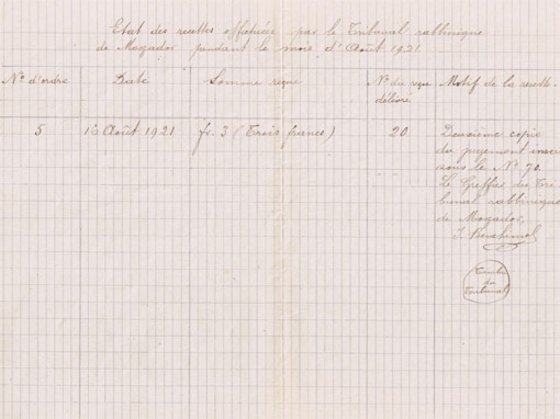 Etat des recettes effectuées par le Tribunal rabbinique
de Mogador pendant le mois d'Août 1921
Nº d'ordre Date Somme reçue Nº du reçu Motif de la recette.
délivré
5 Août 1921 fr. 3 (Trois francs) 20 Deuxième copie
du jugement inscrit
sous le Nº 70.
Le Greffier du Tri-
bunal rabbinique
de Mogador,
Timbre
du
Tribunal